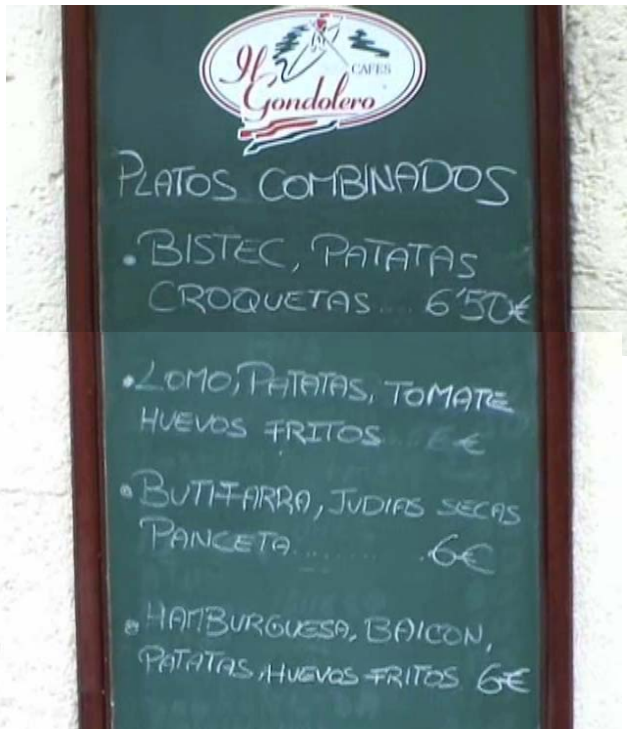 Il
CAFES
Gondolero
PLATOS COMBINADOS
• BISTEC, PATATAS
CROQUETAS... 6'50€
• LOMO, PATATAS, TOMATE
HUEVOS FRITOS... 6€
• BUTIFARRA, JUDIAS SECAS
PANCETA......... 6€
• HAMBURGUESA, BAICON,
PATATAS, HUEVOS FRITOS 6€